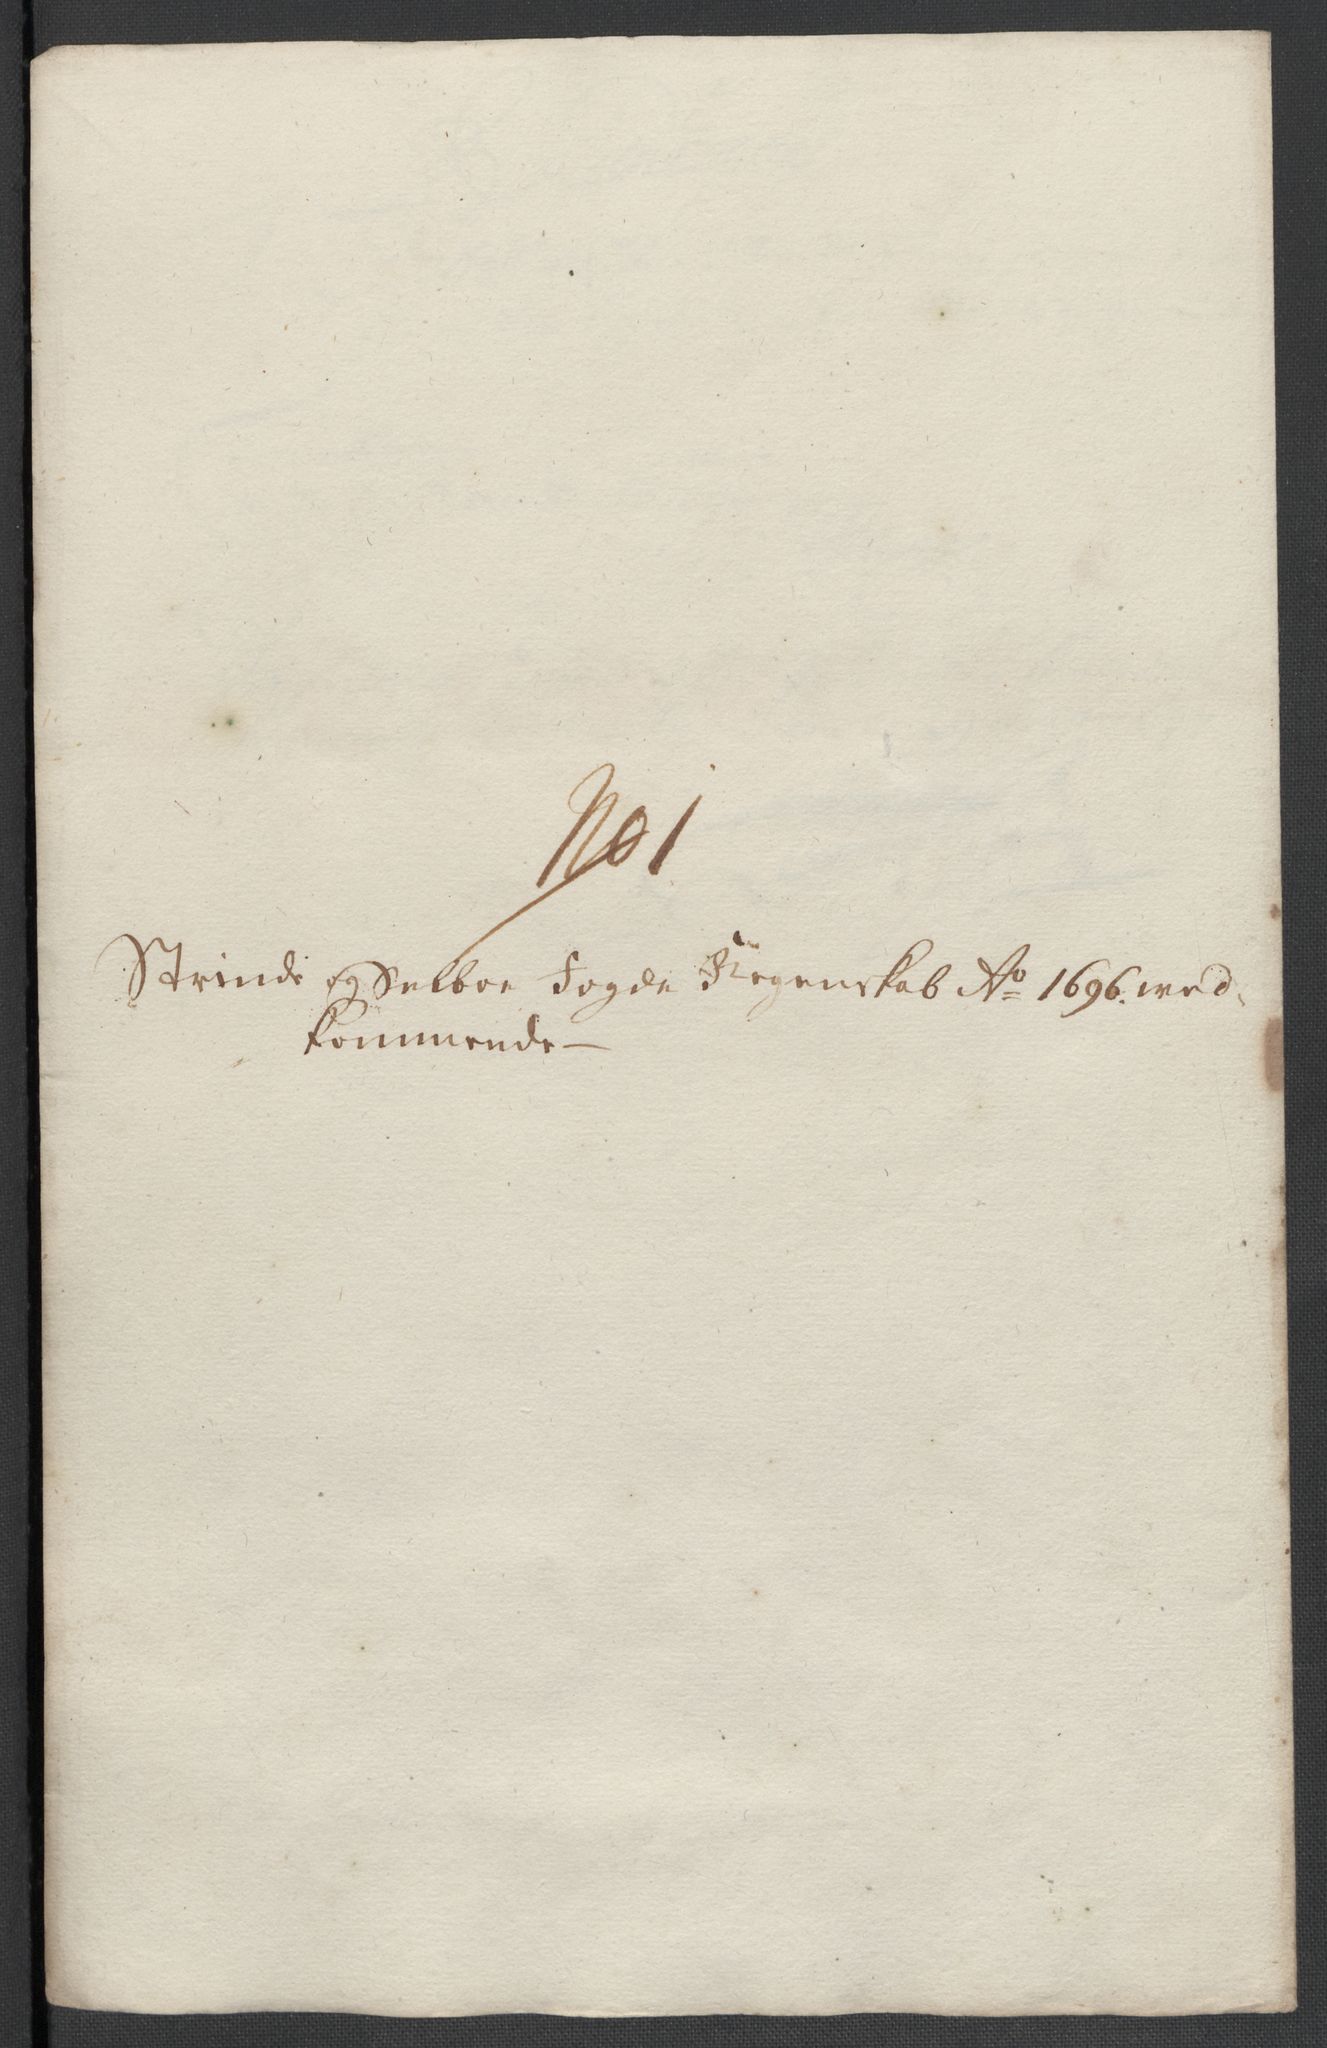 No 1
Strinde og Selboe Fogde Regenskab Ao 1696. wed,
kommende —